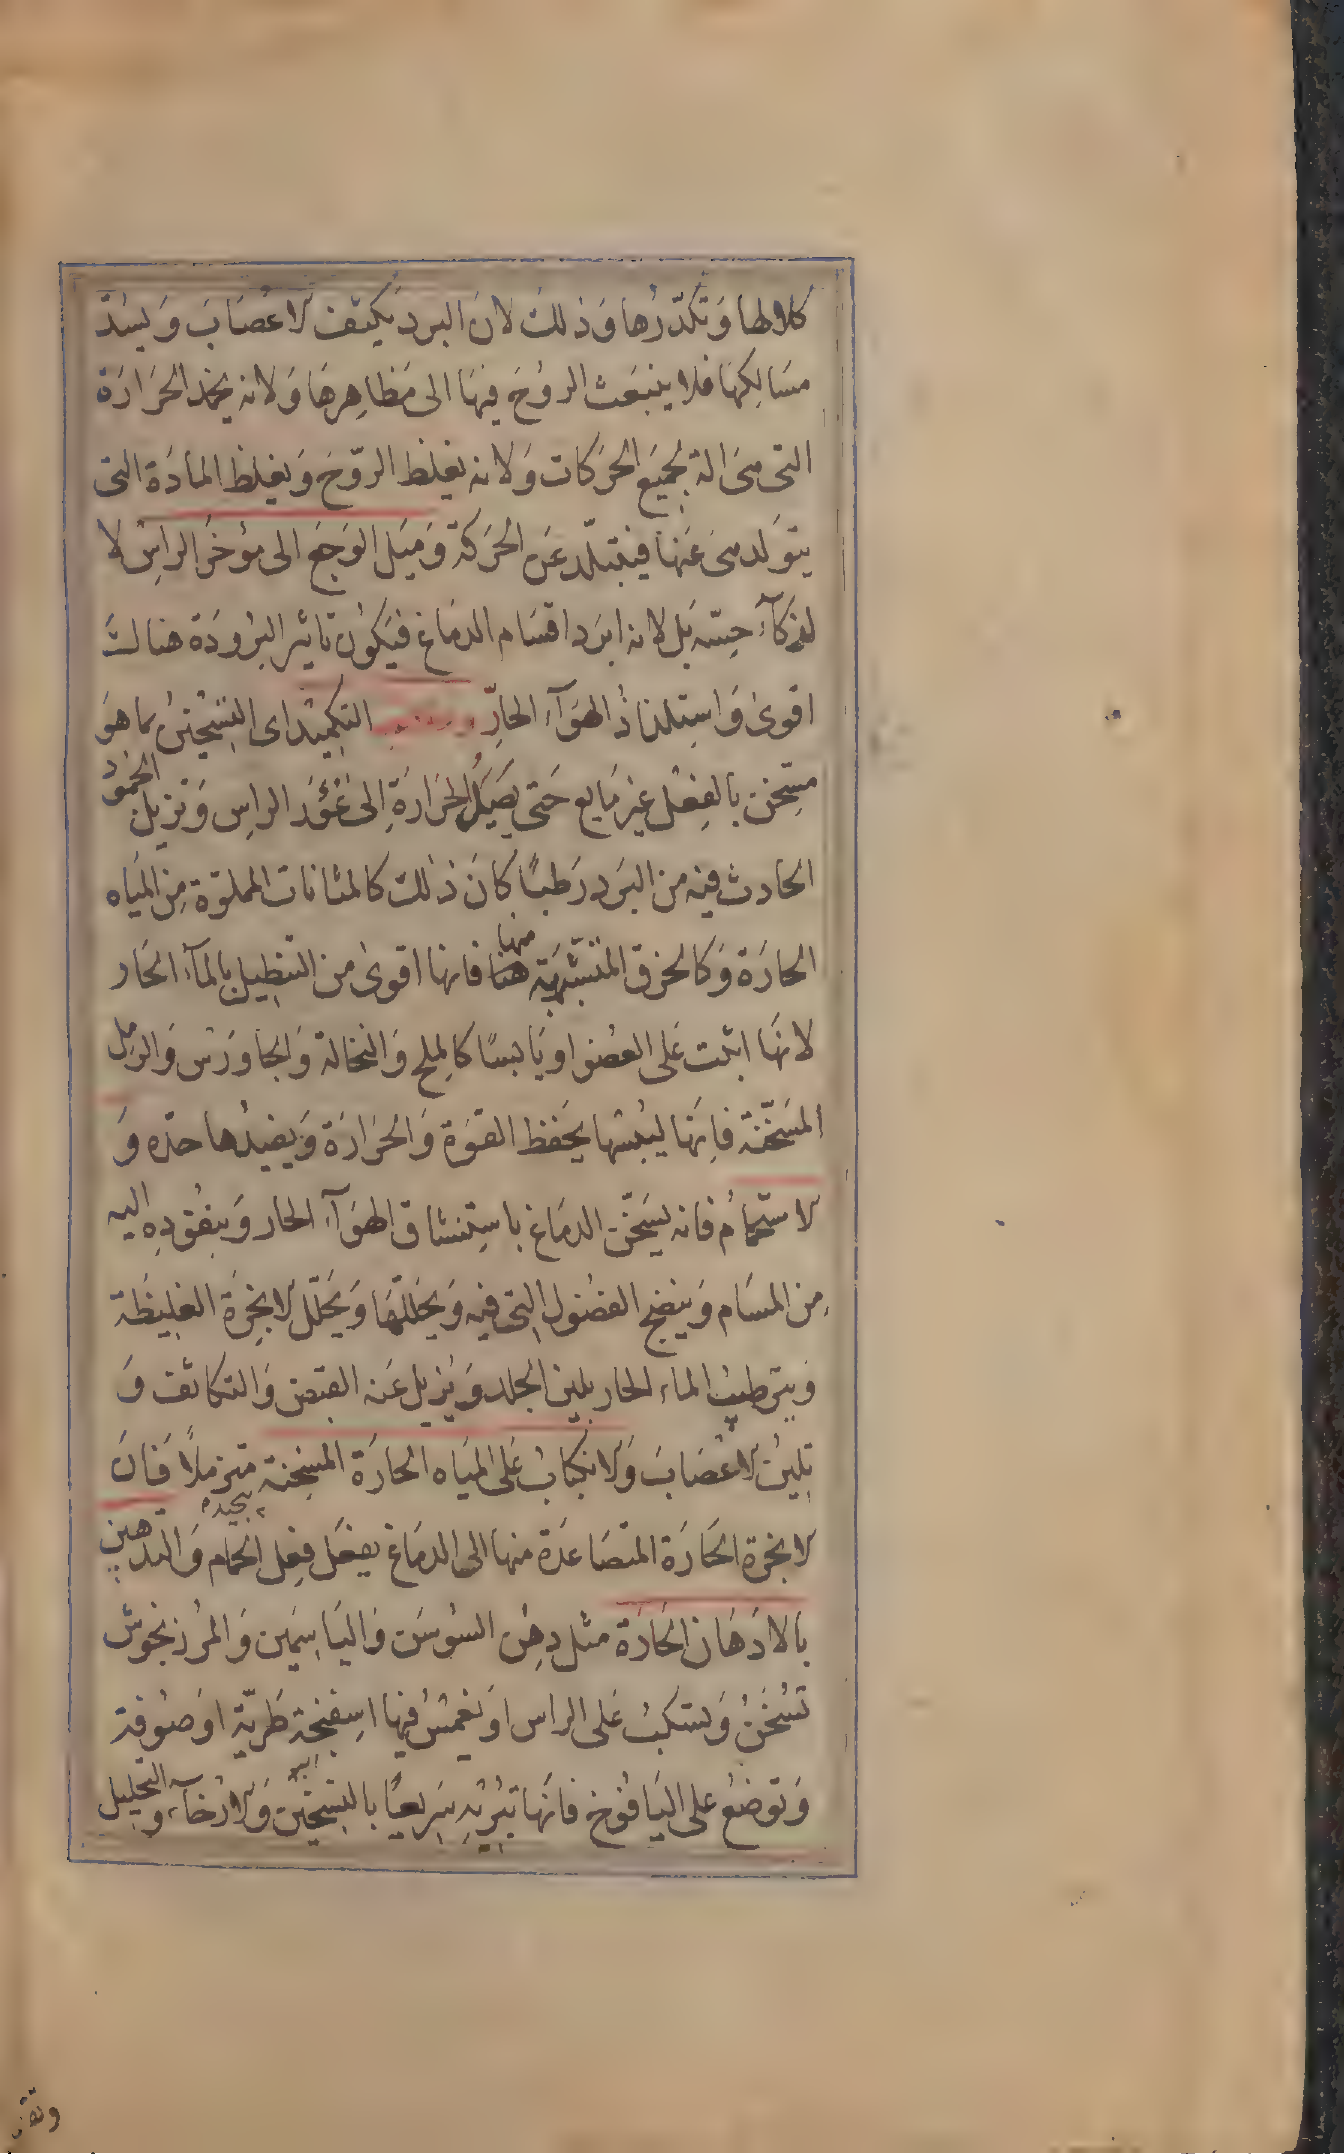 كلالها وَتكدّرُها وَذلكَ لانَ البردَ يكثف الاعْصَابَ وَ يسُدّ
مسَالِكهَا فلا ينبَعَث الروُحَ فيهَا الى مَظاهِرهَا وَلانه يخمد الحَرَارَة
التى هىَ الة لجميَع الحرَكات وَلانه يغلظ الروّحَ وَيغلظ المادَة التى
يتوَلد هىَ عَنها فيَتبلّد عَن الحُرَكة وَميَل الوَجَع الى مؤخرَ الراسِ لا
لذكآءِ حِسّه بَل لانه ابرَد اقسَام الدمَاغ فيَكوُن تاثير البرُودَة هنالكَ
اقوىٰ وَاستِلذاذُ الهوَآءِ الحارِّ التكميْداى التسْخينُ بما هوَ
مسّخن بالفِعْل غير مَايع حَتى يصَل الحَرَارَةِ الى غؤر الراسِ وَتزيل الخموُد
الحادث فيه من البرَد رَطبًا كانَ ذلكَ كالمثانات المملوّة مِن الميَاه
الحارَة وَكالخرق المتشرّبَة منها هنا فانها اقوىٰ من التنطيل بالمآءِ الحَار
لانهَا اثبت عَلى العضو او يَابسًا كالملح وَالنخالة وَالجاوَرْس وَالرمل
المسَخّنة فانهَا ليبُسها يحَفظ القوَة وَالحَرَارَة وَيفيدُها حدّه وَ
الاستحمَامُ فانه يسَخّن الدمَاغ باستِنشاق الهوَآءِ الحار وَبنفُوذِه اليه
مِن المسَام وَينضج الفضُول التى فيه وَيحَللّهَا وَيحَلّل الابخرَة الغليظَة
وَبترطيب الماءِ الحار يلين الجلد وَيُزيل عَنه القبَض وَالتكاثف وَ
تليُن الاعْصَابَ وَالانكبَابُ عَلى الميَاه الحارَة المسَخنة متزملًا فَانَ
الابخرة الحَارَة المتصَاعدَة منها الى الدمَاغ يفعَل فِعل الحمام وَالتدهين
بالادَهَان الحَارَة مثل دهُن السُوسَن وَاليَاسِمَين وَالمرُزنجوش
تسُخَنُ وَتسكبُ عَلى الراس اوَ يغمسُ فيها اسِفنجَة طَرِيّة اوَصُوفة
وَتوضعُ على اليَافوُخ فانهَا تبُرئهِ سَريعًا بالتسخين وَالارْخآءِ والتحليل